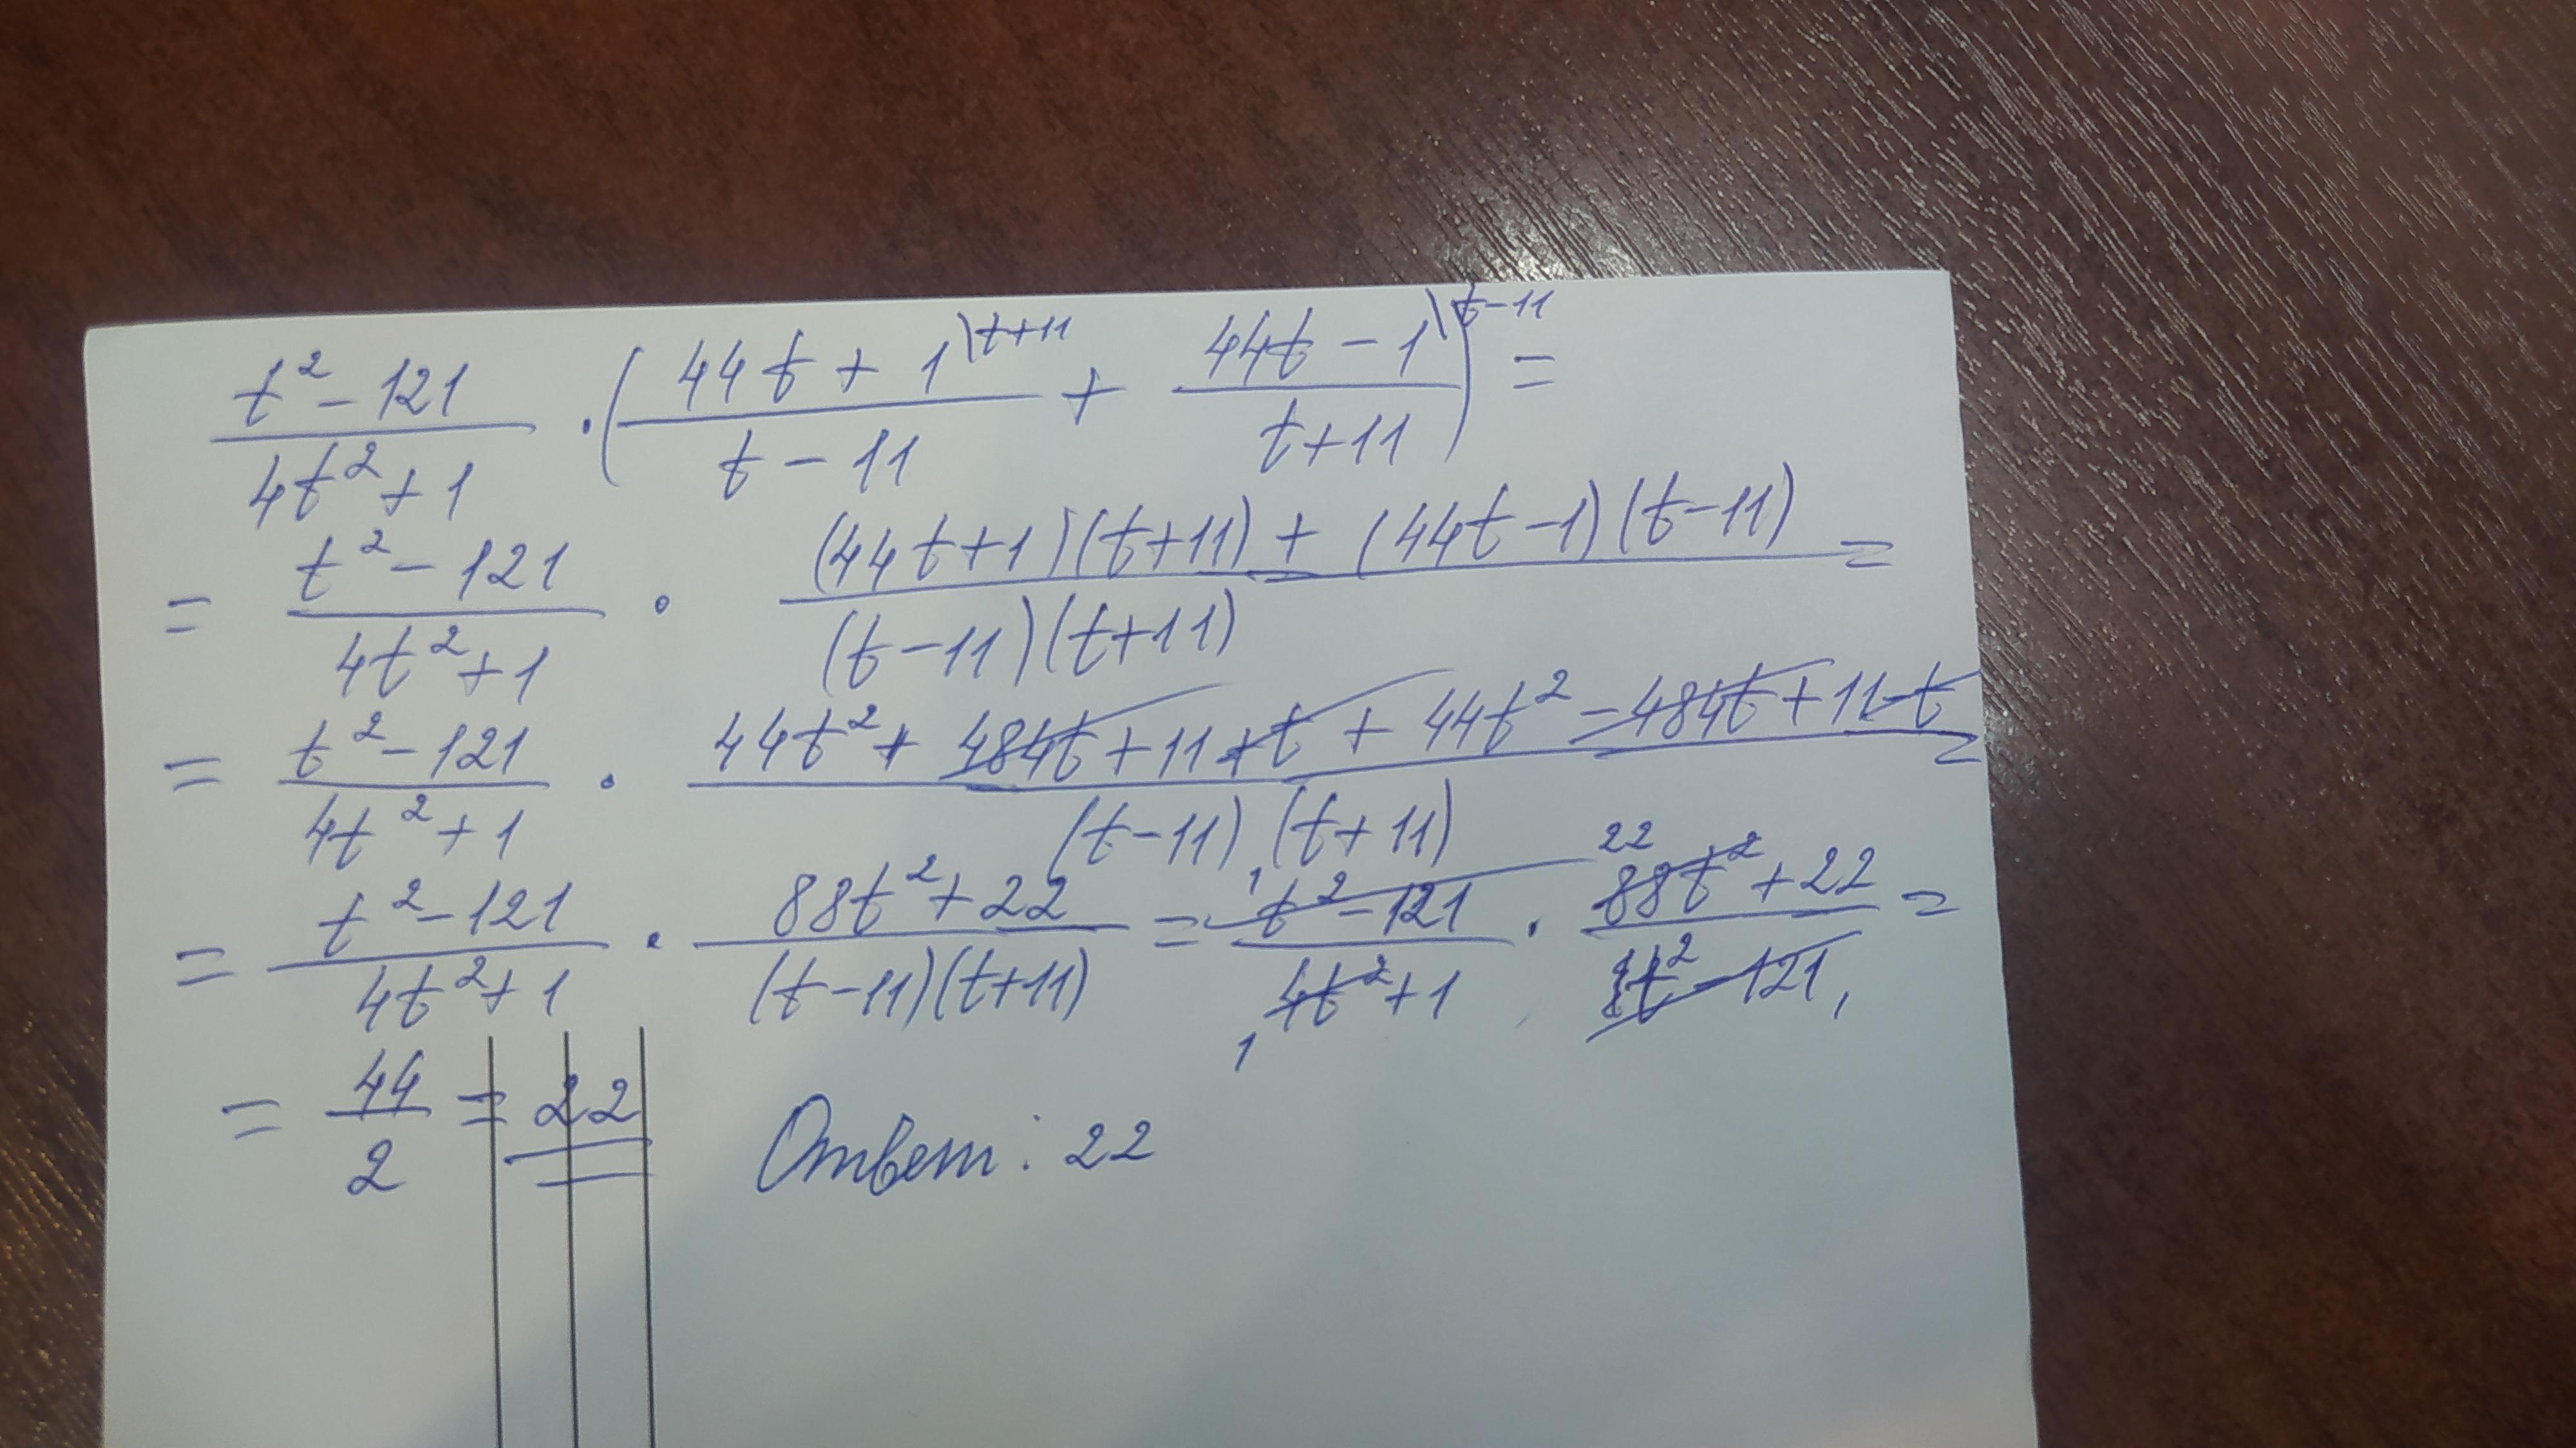 (t² - 121)/(4t² + 1) · ((44t + 1\t+11)/(t - 11) + (44t - 1\t-11)/(t + 11)) =
= (t² - 121)/(4t² + 1) · ((44t+1)(t+11) + (44t-1)(t-11))/((t-11)(t+11)) =
= (t² - 121)/(4t² + 1) · (44t² + 484t + 11 + t + 44t² - 484t + 11 - t)/((t-11)(t+11)) =
= (t² - 121)/(4t² + 1) · (88t² + 22)/((t-11)(t+11)) = (¹ t² - 121)/(₁ 4t² + 1) · (²² 88t² + 22)/(t² - 121 ₁) =
= 44/2 = 22 Ответ: 22